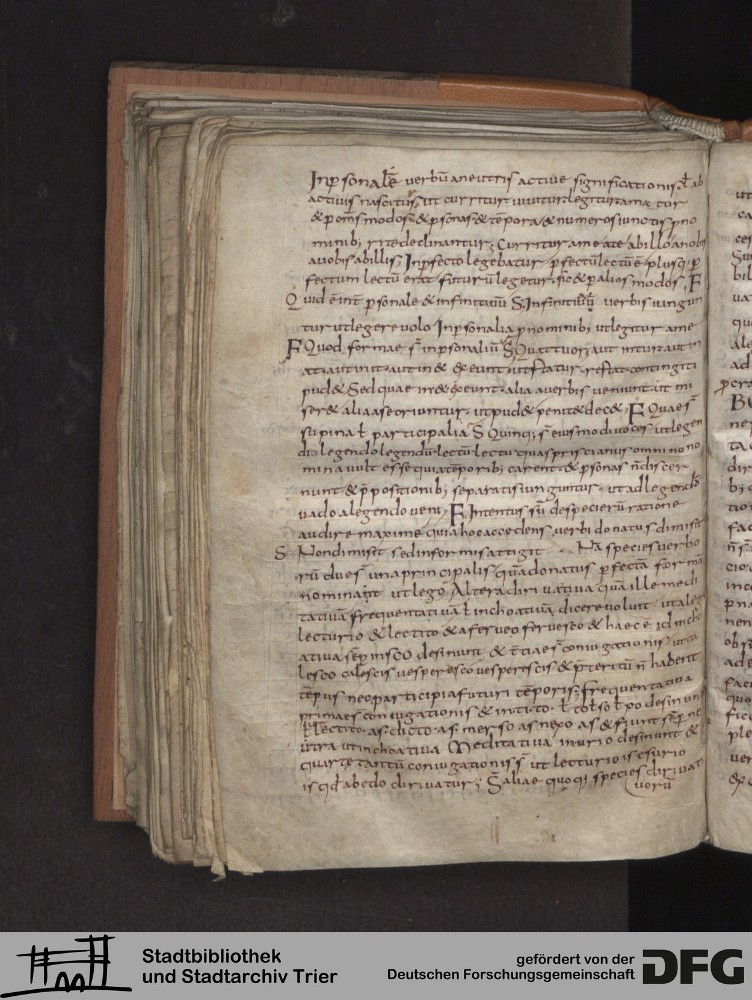 Inpsonale verbu aneutris active significationis ł ab
activis nascitur, ut curritur vivitur legitur ama tur
& p oms modos & psonas & tēpora & numeros iunctis pno
minib; rite declinantur; Curritur ame ate abillo anobis
avobis abillis, Inpfecto legebatur pfectu lectū ē plusq; p
fectum lectū erat futurū legetur, sic & p alios modos. F
Quid ē int psonale & infinitivū S. Infinitivū verbis iungun
tur ut legere volo Inpsonalia pnominib; ut legitur ame
F Quod formae s̄ inpsonaliū S Quattuor, aut in tur aut in
at aut in it aut in & exeunt, ut statur restat contingit
pud& Sed quae in & exeunt alia averbis veniunt ut mi
ser& alia aseoriuntur, ut pud& penit& dec& F Quae s̄
supina ł participalia S Quinq; s̄ eiusmodi voces ut legen
di legendo legendū lectū lectu quas priscianus omnino no
mina vult esse quia tēporib; carent & psonas n̄ discer
nunt & p̄positionib; separatis iunguntur, ut ad legendū
vado a legendo veni, F Intentus sū despecierū ratione
audire maxime quia hoc accedens verbi donatus dimisit
S Non dimisit sed in formis attigit Nā species verbo
rū duęs una principalis quā donatus pfectā formā
nominavit ut lego, Altera dirivativa quā ille medi
tativā frequentativā ł inchoativā dicere voluit ut a lego
lecturio & lectito & a ferveo fervesco & haec ē id incho
ativa sēp in sco desinunt & t̄tiae s̄ coniugationis ut ca
lesco calescis vesperesco vesperescis & p̄teritū n̄ habent
tēpus neq participia futuri tēporis, frequentativa
primae s̄ coniugationis & in to ł so ł xo desinunt
ut lectito as dicto as merso as nexo as & fiunt sēp ne
utra ut inchoativa Meditativa in urio desinunt &
quartę tantū coniugationis s̄ ut lecturio is esurio
is qd ab edo dirivatur; S̄ aliae quoq; species dirivati
vorū
Stadtbibliothek
und Stadtarchiv Trier
gefördert von der
Deutschen Forschungsgemeinschaft
DFG